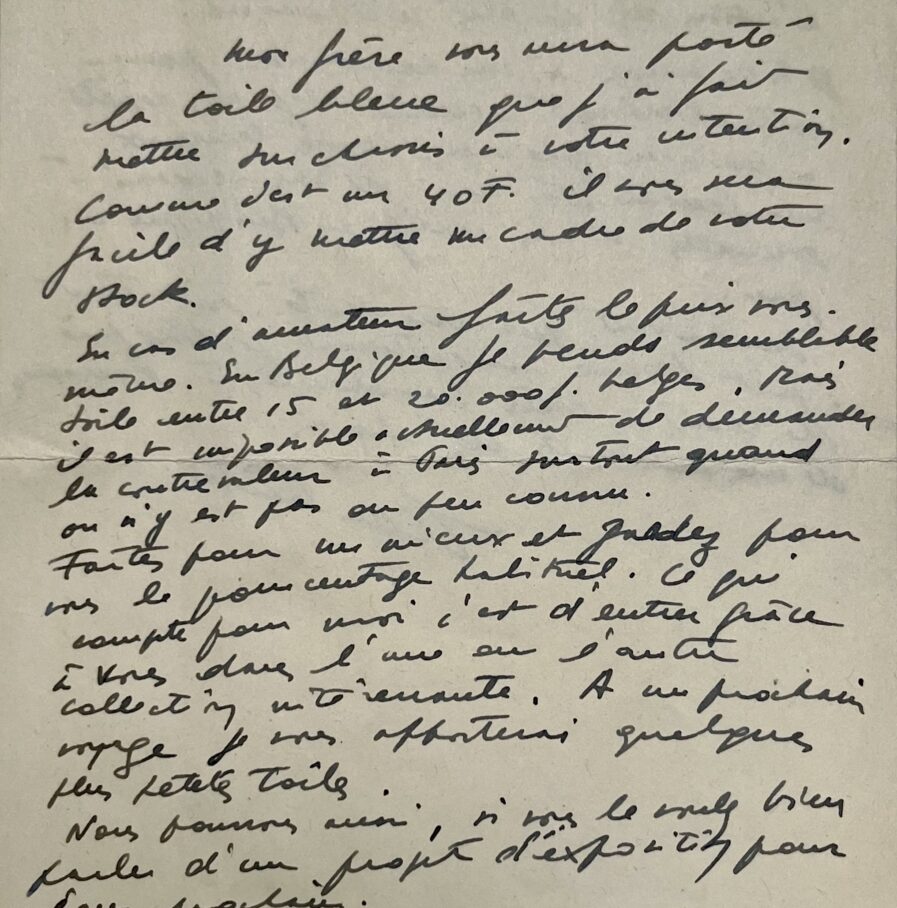 Mon frère vous aura porté
la toile bleue que j'ai fait
mettre sur chassis à votre intention.
Comme c'est un 40 F. il vous sera
facile d'y mettre un cadre de votre
stock.
En cas d'amateur faites le prix vous-
même. En Belgique je vends semblable
toile entre 15 et 20.000 f. belges. Mais
il est impossible actuellement de demander
la contrevaleur à Paris surtout quand
on n'y est pas ou peu connu.
Faites pour un mieux et gardez pour
vous le pourcentage habituel. Ce qui
compte pour moi c'est d'entrer grâce
à vous dans l'une ou l'autre
collection intéressante. A un prochain
voyage je vous apporterai quelques
plus petites toiles.
Nous pourrons aussi, si vous le voulez bien
parler d'un projet d'exposition pour
prochain.